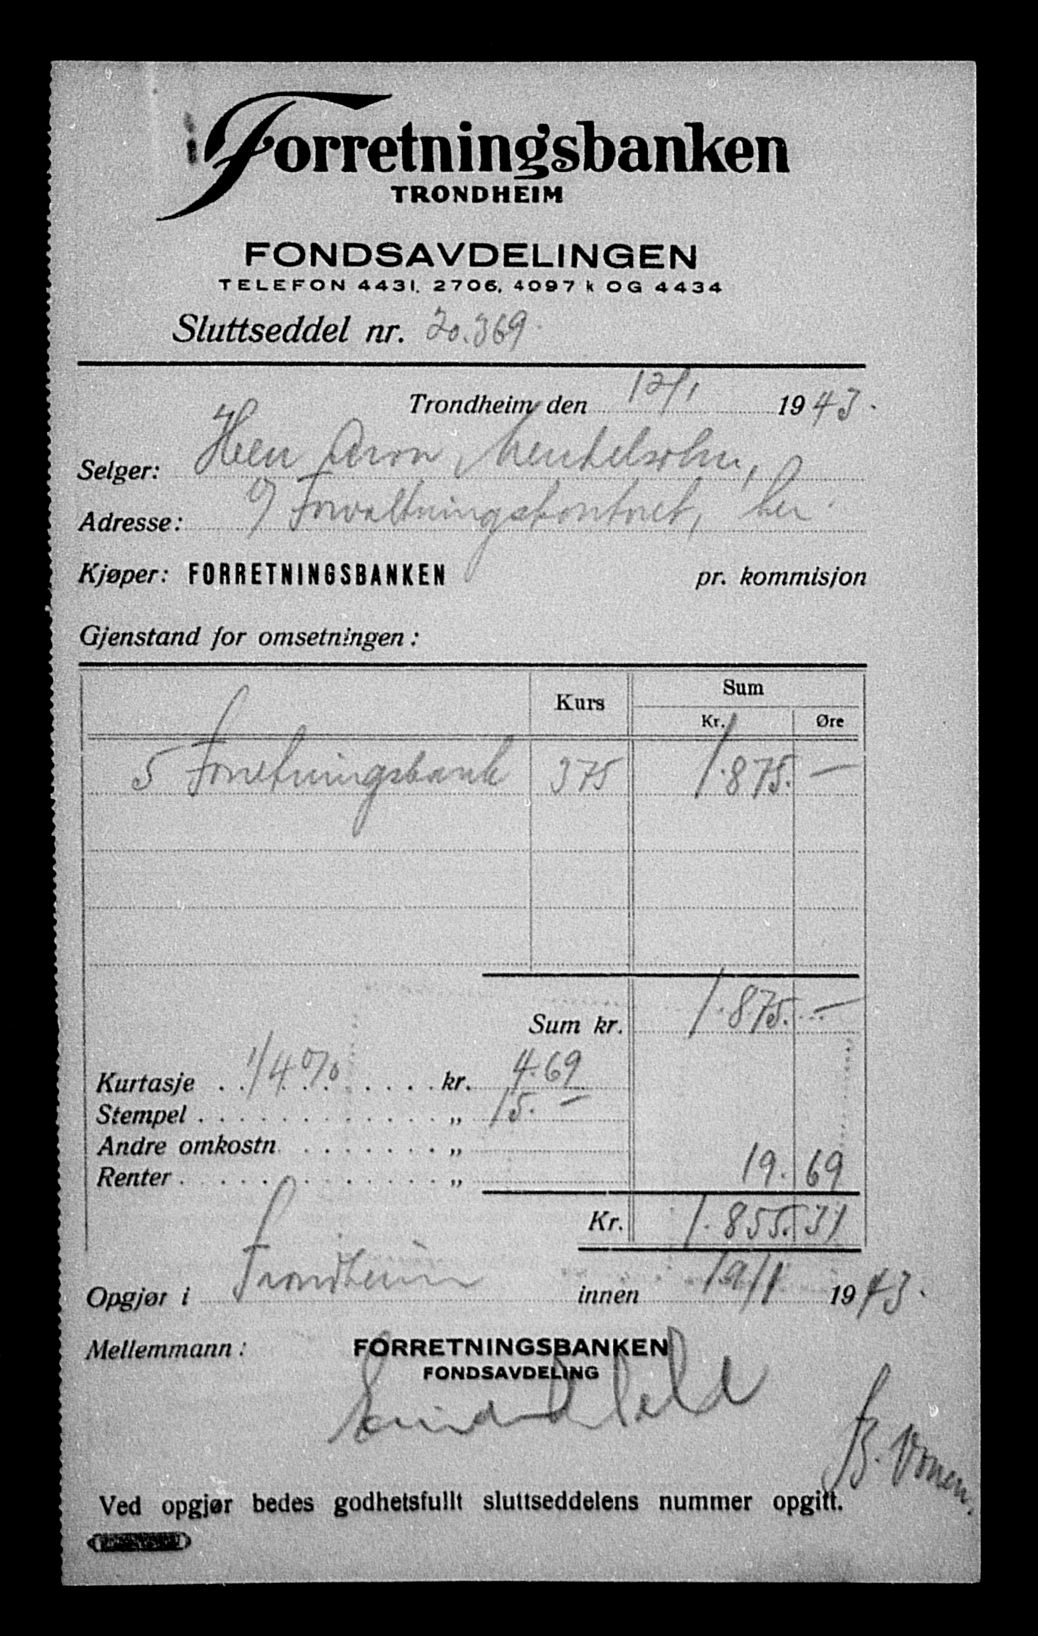 Forretningsbanken
TRONDHEIM
FONDSAVDELINGEN
TELEFON 4431, 2706, 4097 k OG 4434
Sluttseddel nr. 20.369.
Trondheim den 12/1 1943.
Selger: Herr Aron Mendelsohn,
Adresse: c/ Forvaltningskontoret, her.
Kjøper: FORRETNINGSBANKEN pr. kommisjon
Gjenstand for omsetningen:
Kurs Sum
Kr. Øre
5 Forretningsbank 375 1.875. —
Sum kr. 1.875. —
Kurtasje 1/4 % kr. 4.69
Stempel „ 15. —
Andre omkostn. „
Renter „ 19.69
Kr. 1.855.31
Opgjør i Trondheim innen 19/1 1943.
Mellemmann: FORRETNINGSBANKEN
FONDSAVDELING
Ved opgjør bedes godhetsfullt sluttseddelens nummer opgitt.